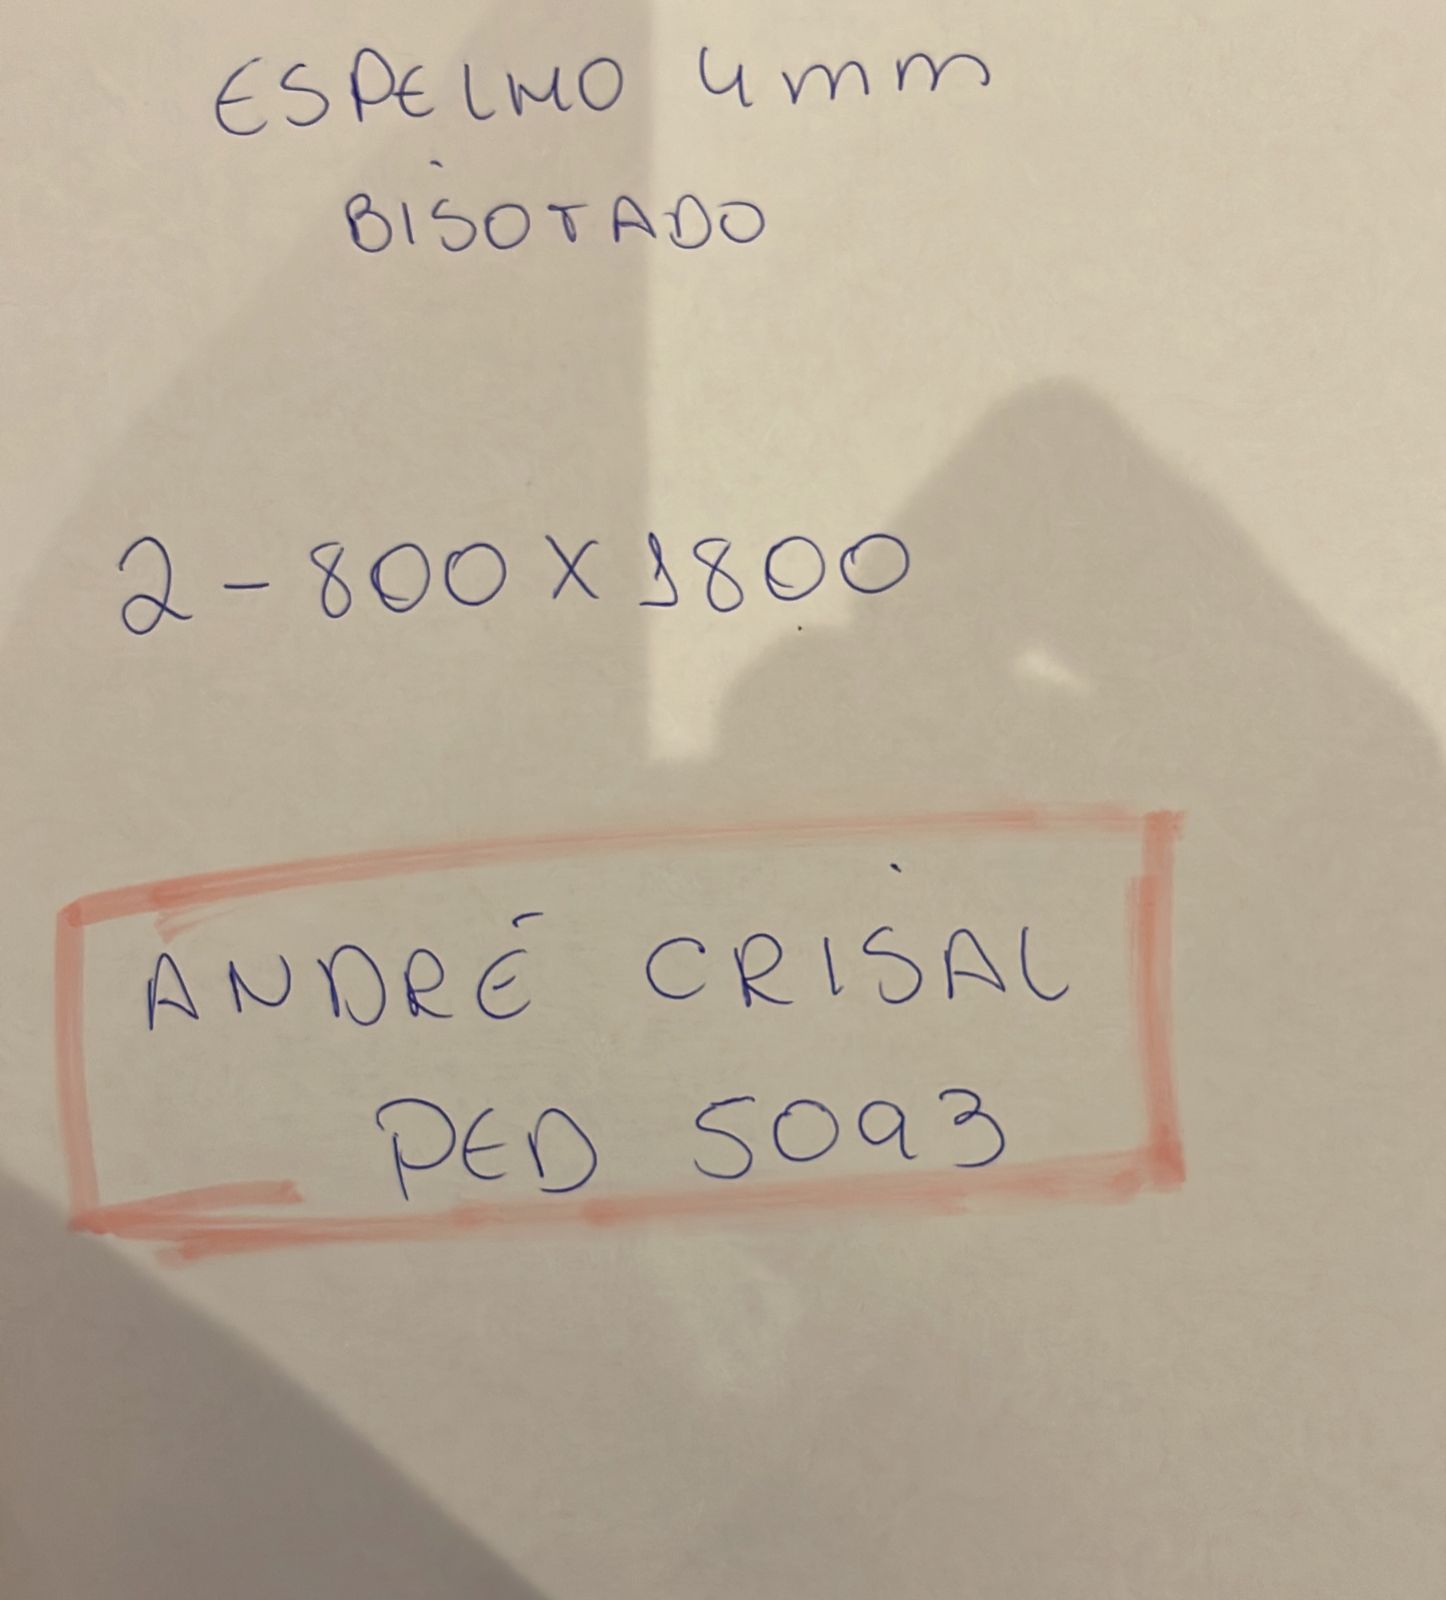 ESPELHO 4mm
BISOTADO
2 - 800 X 1800
ANDRÉ CRISAL
PED 5093